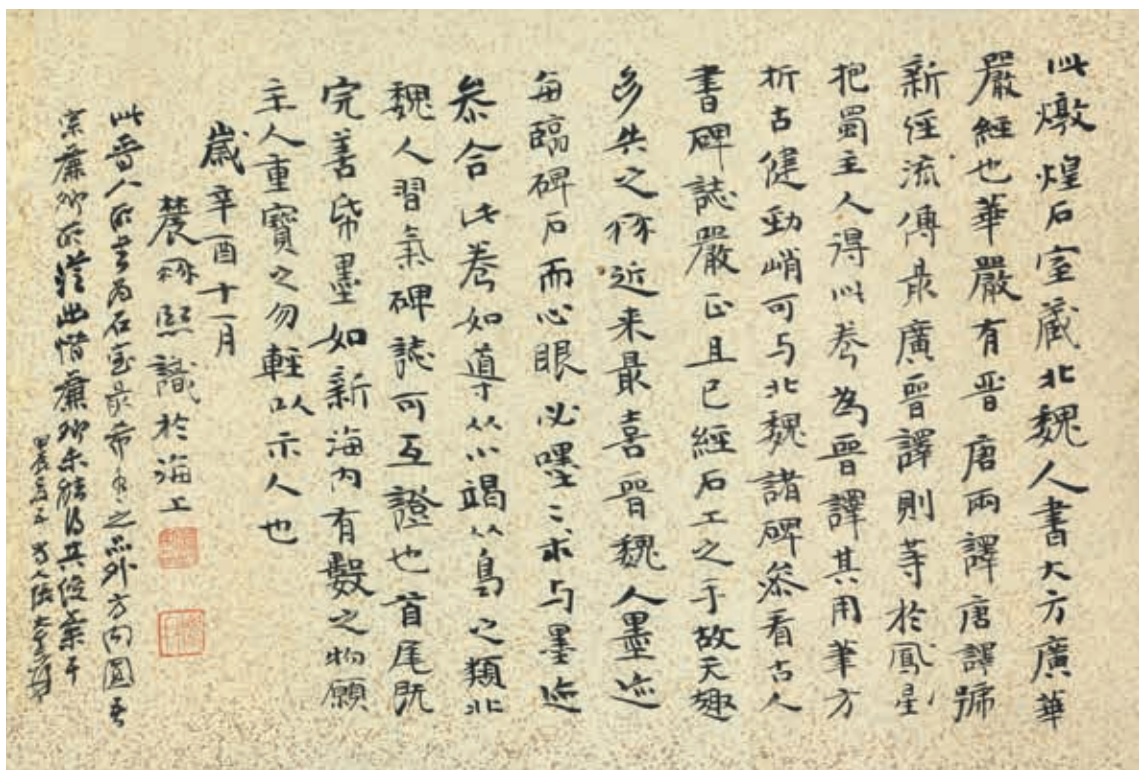 此燉煌石室藏北魏人書大方廣華
嚴經也華嚴有晉唐兩譯唐譯號
新經流傳最廣晉譯則等於鳳星
抱蜀主人得此卷為晉譯其用筆方
折古健勁峭可与北魏諸碑參看古人
書碑誌嚴正且已經石工之手故天趣
多失之髯近来最喜晉魏人墨迹
每臨碑石而心眼必嘿〻求与墨迹
參合此卷如導从小竭从鳥之類北
魏人習氣碑誌可互證也首尾既
完善帋墨如新海内有數之物願
主人重寶之勿輕以示人也
歲辛酉十一月
農髯熙識於海上
此晉人所書為石室最希有之品外方內圓吾
宗廉卿所從出惜廉卿未能得其俊耳
人張大千